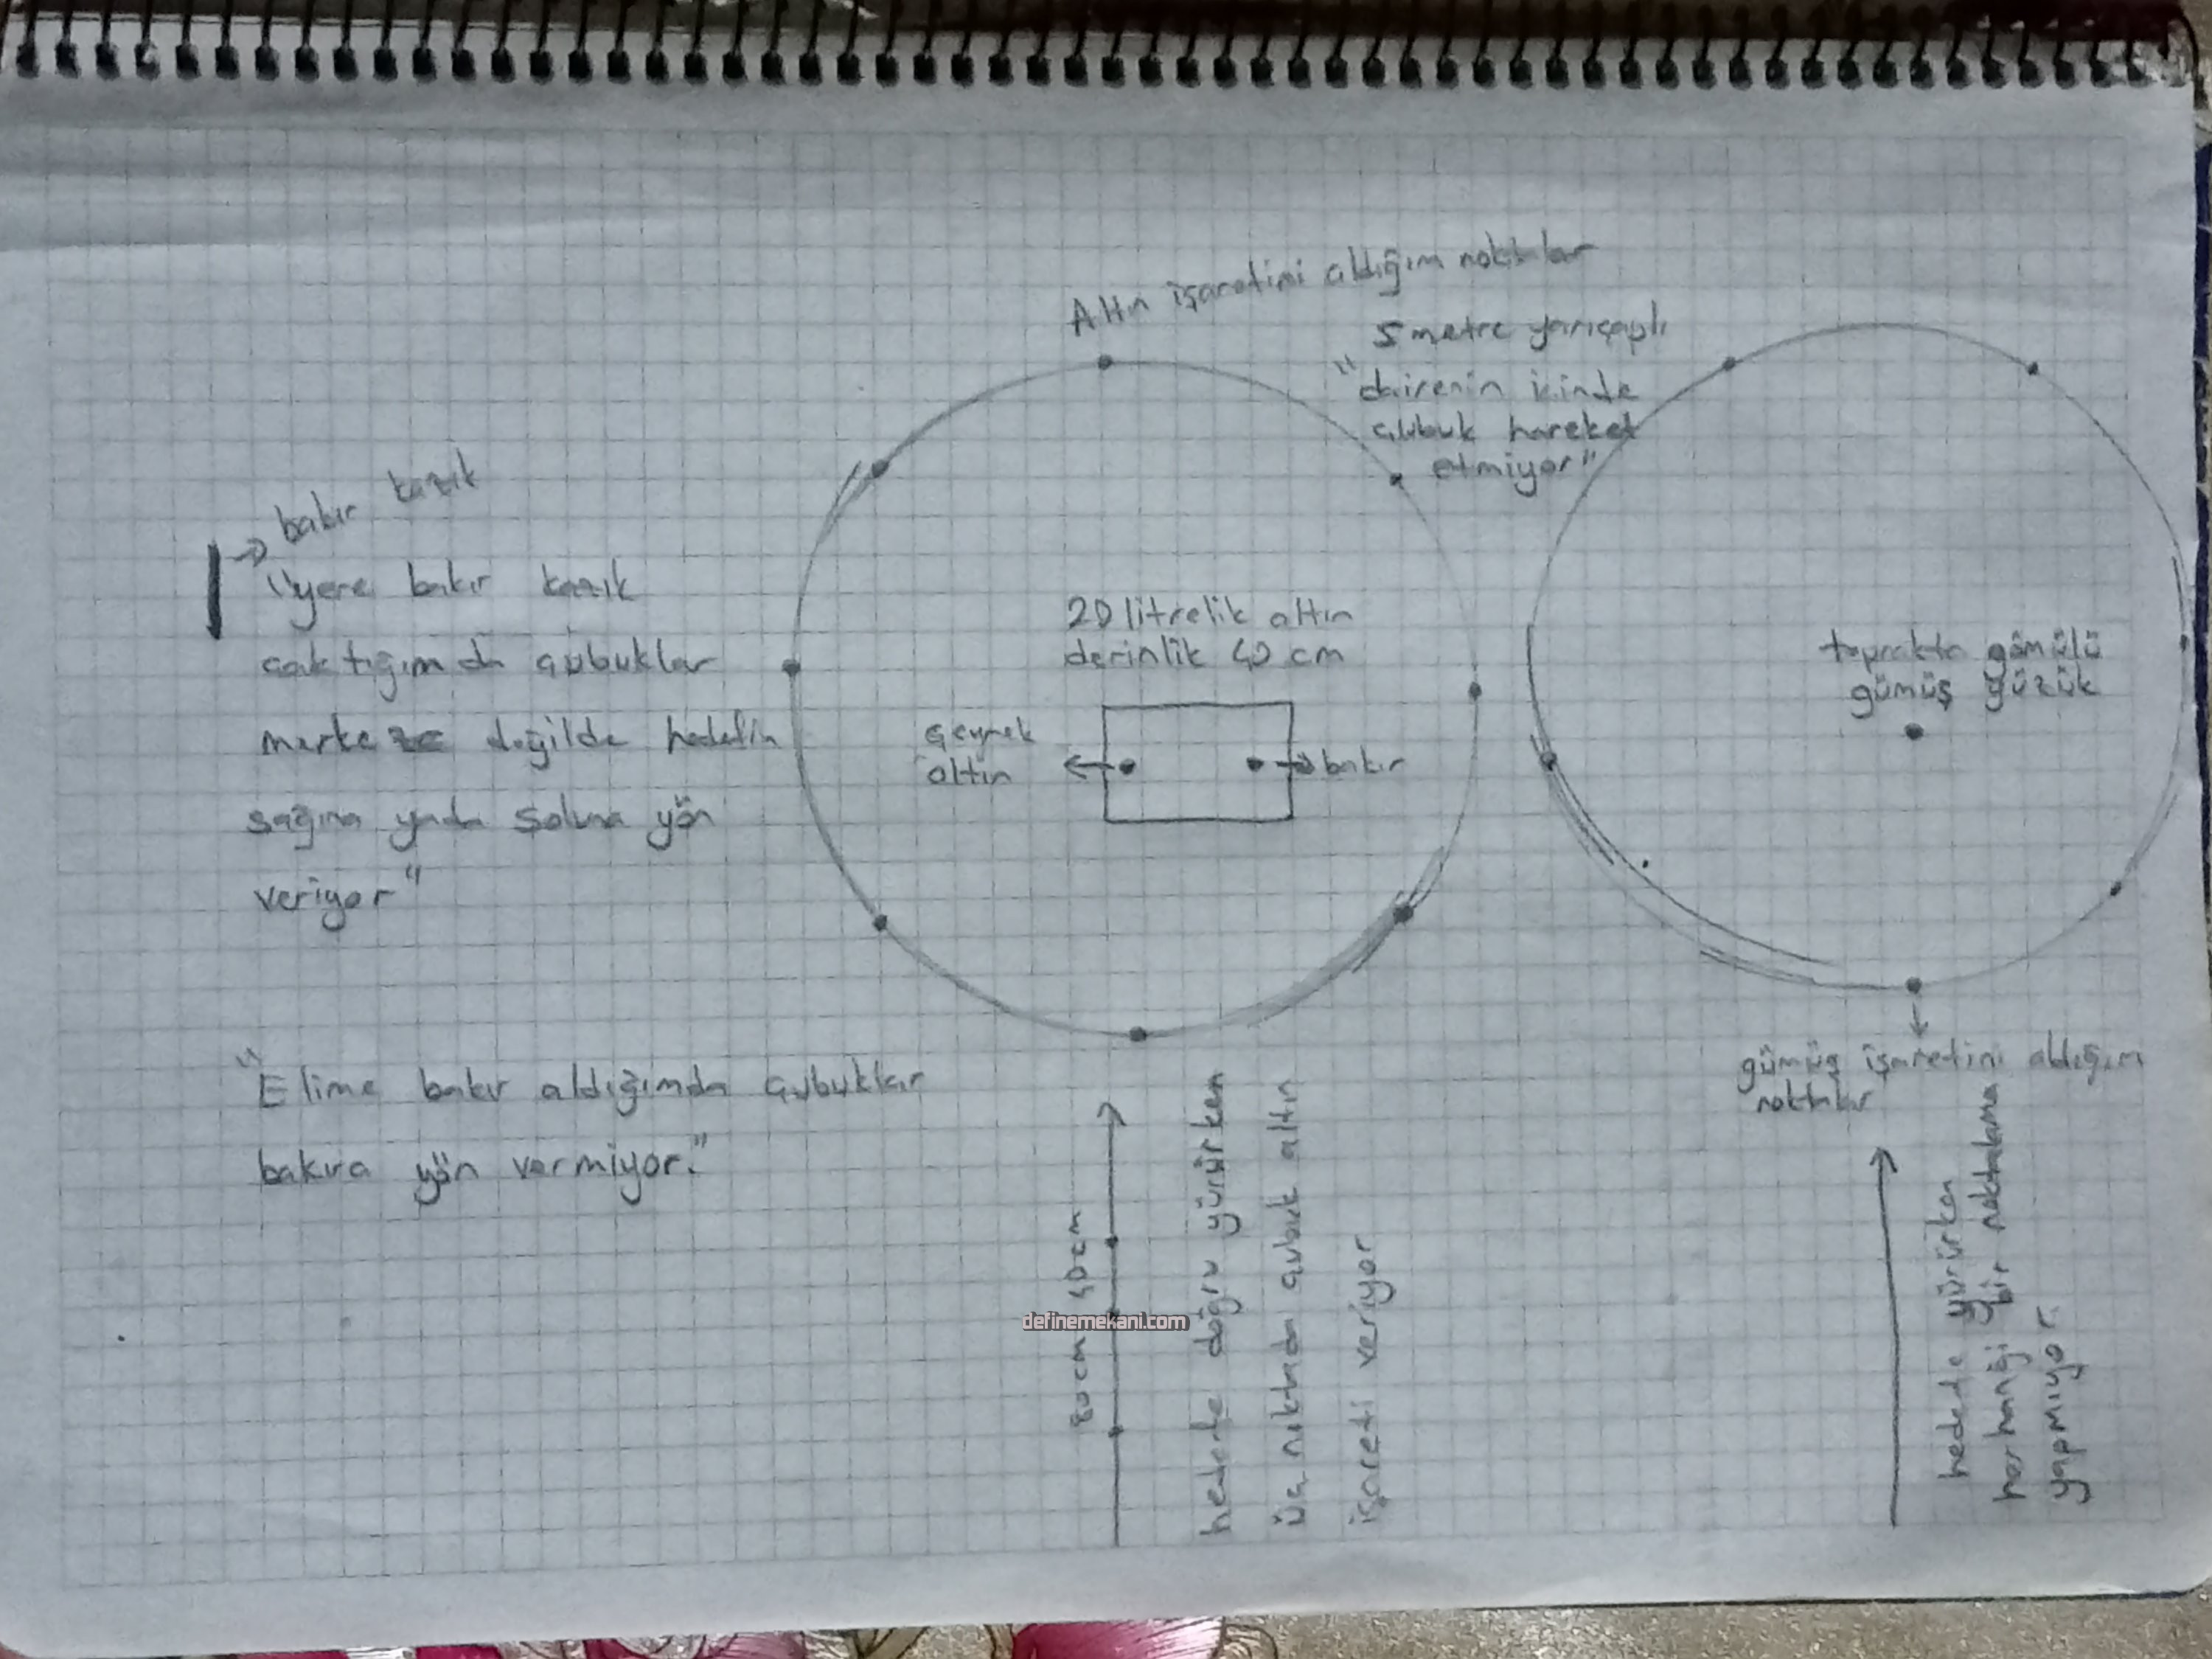 Altın işaretini aldığım noktalar
5 metre yarıçaplı
"dairenin içinde
çubuk hareket
etmiyor"
bakır kazık
"yere bakır kazık
çaktığımda çubuklar
merkeze değilde hedefin
sağına yada soluna yön
veriyor"
20 litrelik altın
derinlik 40 cm
çeyrek
altın
bakır
toprakta gömülü
gümüş yüzük
"Elime bakır aldığımda çubuklar
bakıra yön vermiyor."
gümüş işaretini aldığım
noktalar
80cm 40cm
hedefe doğru yürürken
üç noktada çubuk altın
işareti veriyor
hedefe yürürken
herhangi bir noktalama
yapmıyor.
definemekani.com